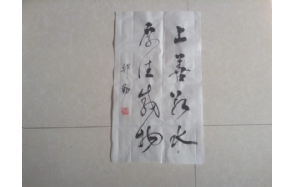 上善若水
厚德载物